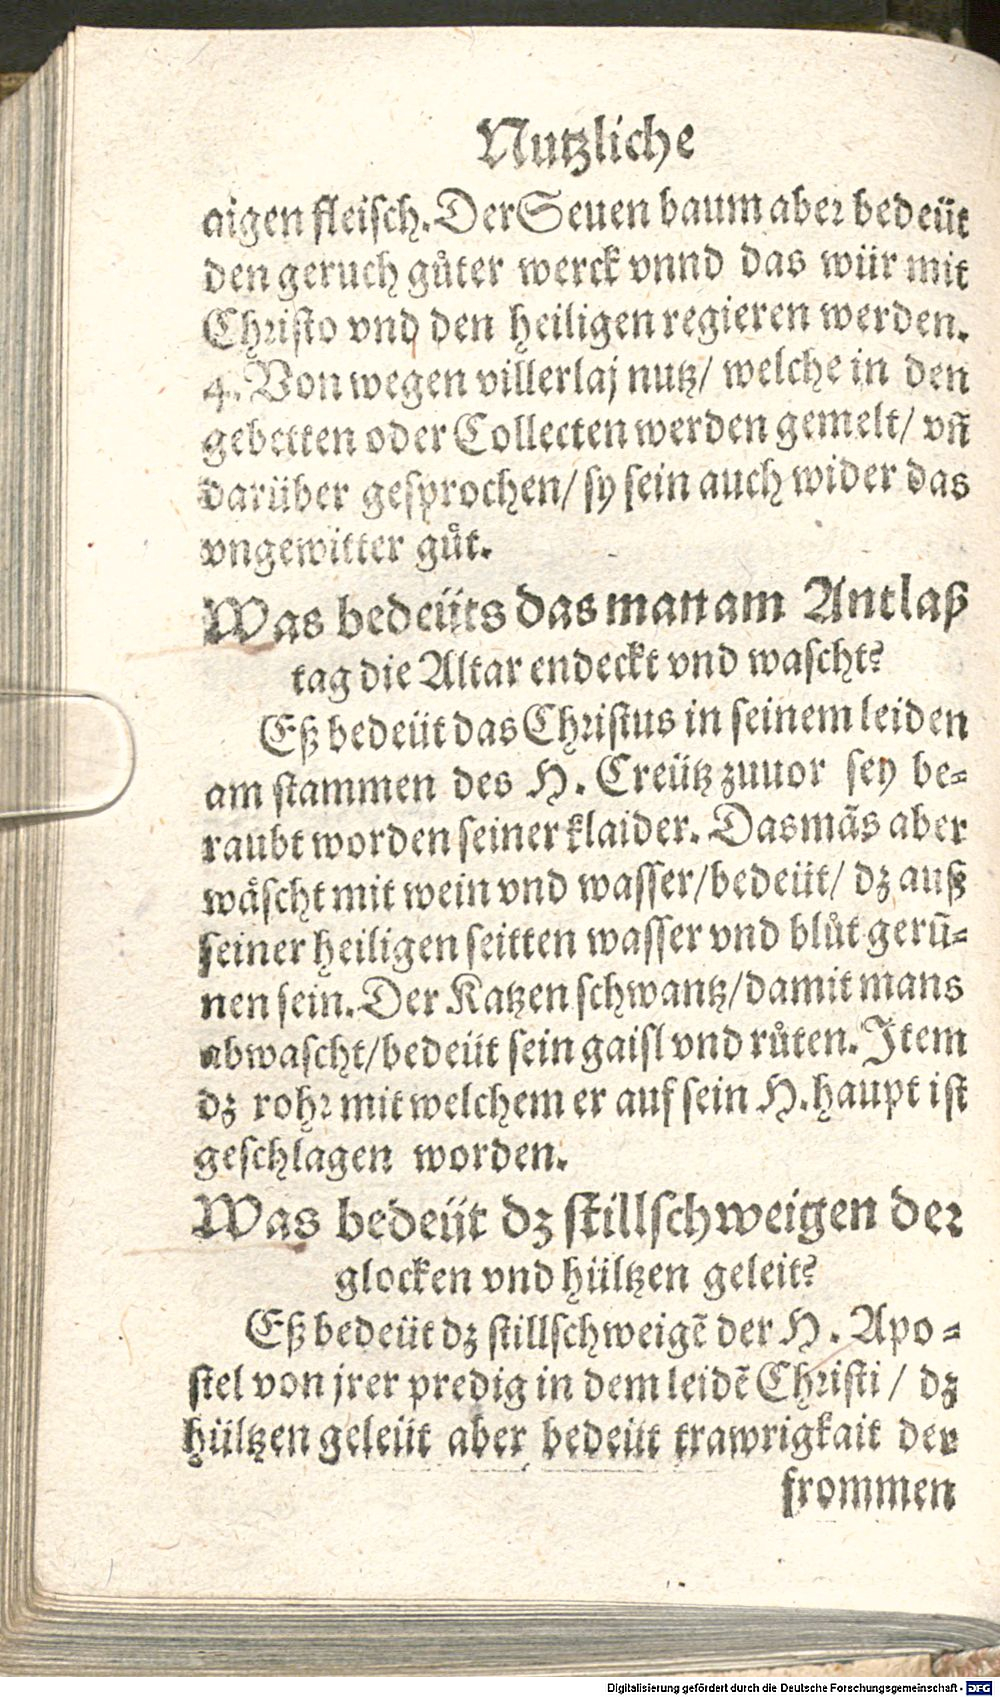 Nutzliche
aigen fleisch. Der Seuen baum aber bedeüt
den geruch gůter werck vnnd das wür mit
Christo vnd den heiligen regieren werden.
4. Von wegen villerlaj nutz/ welche in den
gebetten oder Collecten werden gemelt/ vñ
darüber gesprochen/ sy sein auch wider das
vngewitter gůt.
Was bedeüts das man am Antlaß
tag die Altar endeckt vnd wascht?
Eß bedeüt das Christus in seinem leiden
am stammen des H. Creütz zuuor sey be-
raubt worden seiner klaider. Das mãs aber
wäscht mit wein vnd wasser/ bedeüt/ dz auß
seiner heiligen seitten wasser vnd blůt gerũ-
nen sein. Der Katzen schwantz/ damit mans
abwascht/ bedeüt sein gaisl vnd růten. Item
dz rohr mit welchem er auf sein H. haupt ist
geschlagen worden.
Was bedeüt dz stillschweigen der
glocken vnd hültzen geleit?
Eß bedeüt dz stillschweigẽ der H. Apo-
stel von jrer predig in dem leidẽ Christi / dz
hültzen geleüt aber bedeüt trawrigkait der
frommen
Digitalisierung gefördert durch die Deutsche Forschungsgemeinschaft - DFG